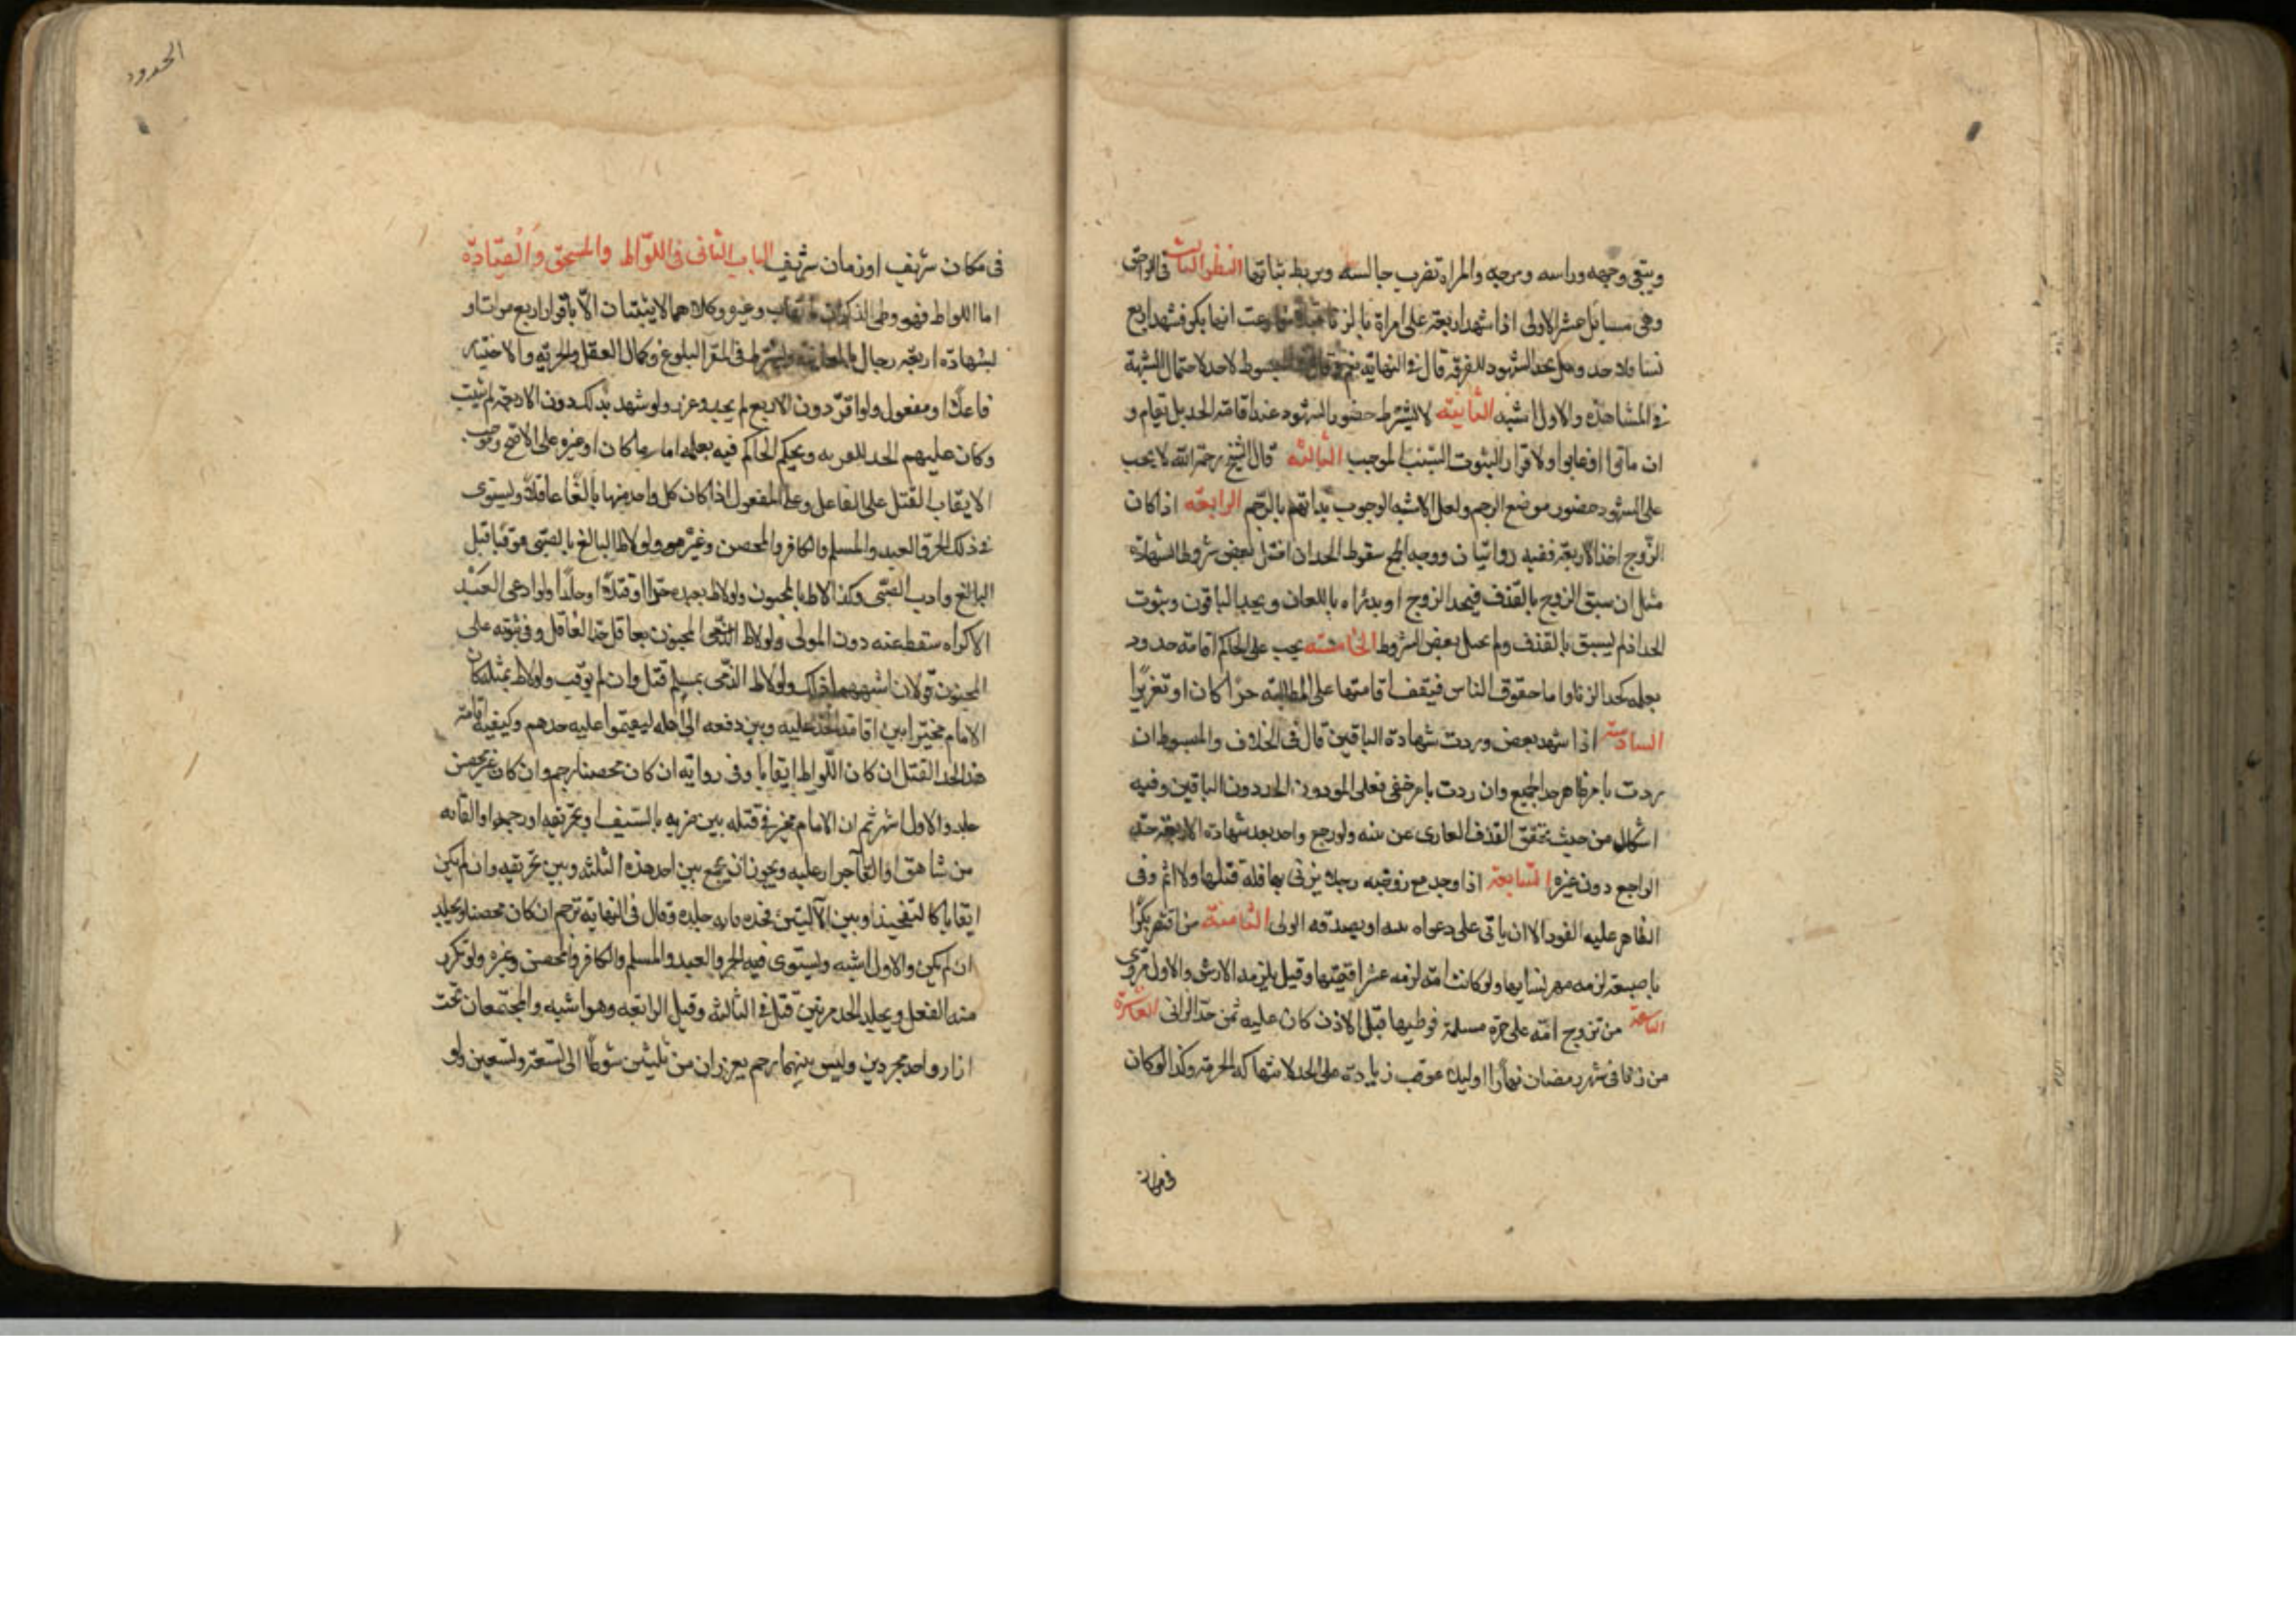 ويتقى وجهه وراسه وفرجه والمراة تضرب جالسه وتربط ثيابها النظر الثالث فى اللواحق
وهى مسايل عشر الاولى اذا شهد اربعة على امراة بالزنا قبلا فادعت انها بكر فشهد اربع
نسا فلا حد وهل يحد الشهود للفرية قال فى النهاية نعم وقال فى المبسوط لا حد لاحتمال الشبهة
فى المشاهدة والاول اشبه الثانية لا يشترط حضور الشهود عند اقامة الحد بل تقام و
ان ماتوا او غابوا ولا فرار لثبوت السبب الموجب الثالثه قال الشيخ رحمه الله لا يجب
على الشهود حضور موضع الرجم ولعل الاشبه الوجوب لوجوب بداتهم بالرجم الرابعه اذا كان
الزوج احد الاربعة ففيه روايتان ووجه الجمع سقوط الحد ان اختل بعض شروط الشهادة
مثل ان سبق الزوج بالقذف فيحد الزوج او يدرأه باللعان ويحد الباقون وثبوت
الحد اذا لم يسبق بالقذف ولم يختل بعض الشروط الخامسه يجب على الحاكم اقامة حدود
بعلمه كحد الزنا واما حقوق الناس فيقف اقامتها على المطالبة حدا كان او تعزيرا
السادسة اذا شهد بعض وردت شهادة الباقين قال فى الخلاف والمبسوط ان
ردت بامر ظاهر حد الجميع وان ردت بامر خفى فعلى المردود الحد دون الباقين وفيه
اشكال من حيث تحقق القذف العارى عن بينه ولو رجع واحد بعد شهادة الاربعة حد
الراجع دون غيره السابعة اذا وجد مع زوجته رجلا يزنى بها فله قتلهما ولا اثم وفى
الظاهر عليه القود الا ان ياتى على دعواه ببينه او يصدقه الولى الثامنة من افتض بكرا
باصبعه لزمه مهر نسايها ولو كانت امة لزمه عشر قيمتها وقيل يلزمه الارش والاول مروى
التاسعة من تزوج امة على حرة مسلمة فوطيها قبل الاذن كان عليه ثمن حد الزانى العاشرة
من زنا فى شهر رمضان نهارا او ليلا عوقب زيادة على الحد لانتهاكه الحرمة وكذا لو كان
فى مكان
الحدود
فى مكان شريف او زمان شريف الباب الثانى فى اللواط والسحق والقيادة
اما اللواط فهو وطى الذكران بايقاب وغيره وكلاهما لا يثبتان الا باقرار اربع مرات او
بشهادة اربعة رجال بالمعاينه ويشترط فى المقر البلوغ وكمال العقل والحرية والاختيار
فاعلا او مفعولا ولو اقر دون الاربع لم يحد وعزر ولو شهد بذلك دون الاربعة لم يثبت
وكان عليهم الحد للفرية ويحكم الحاكم فيه بعلمه اماما كان او غيره على الاصح وموجب
الايقاب القتل على الفاعل وعلى المفعول اذا كان كل واحد منهما بالغا عاقلا ويستوى
فى ذلك الحر والعبد والمسلم والكافر والمحصن وغيره ولو لاط البالغ بالصبى موقبا قتل
البالغ وادب الصبى وكذا لو لاط بالمجنون ولو لاط بعبده حدا او قتلا او جلدا ولو ادعى العبد
الاكراه سقط عنه دون المولى ولو لاط المجنون بعاقل حد العاقل وفى ثبوته على
المجنون قولان اشبههما السقوط ولو لاط الذمى بمسلم قتل وان لم يوقب ولو لاط بمثله كان
الامام مخيرا بين اقامة الحد عليه وبين دفعه الى اهله ليقيموا عليه حدهم وكيفية اقامة
هذا الحد القتل ان كان اللواط ايقابا وفى رواية ان كان محصنا رجم وان كان غير محصن
جلد والاول اشهر ثم ان الامام مخير فى قتله بين ضربه بالسيف او تحريقه او رجمه او القائه
من شاهق او القآء جدار عليه ويجوز ان يجمع بين احد هذه الثلثه وبين تحريقه وان لم يكن
ايقابا كالتفخيذ او بين الآليتين فحده مايه جلده وقال فى النهاية يرجم ان كان محصنا ويجلد
ان لم يكن والاول اشبه ويستوى فيه الحر والعبد والمسلم والكافر والمحصن وغيره ولو تكرر
منه الفعل ويجلد الحد مرتين قتل فى الثالثة وقيل الرابعه وهو اشبه والمجتمعان تحت
ازار واحد مجردين وليس بينهما رحم يعزران من ثلثين سوطا الى تسعة وتسعين ولو